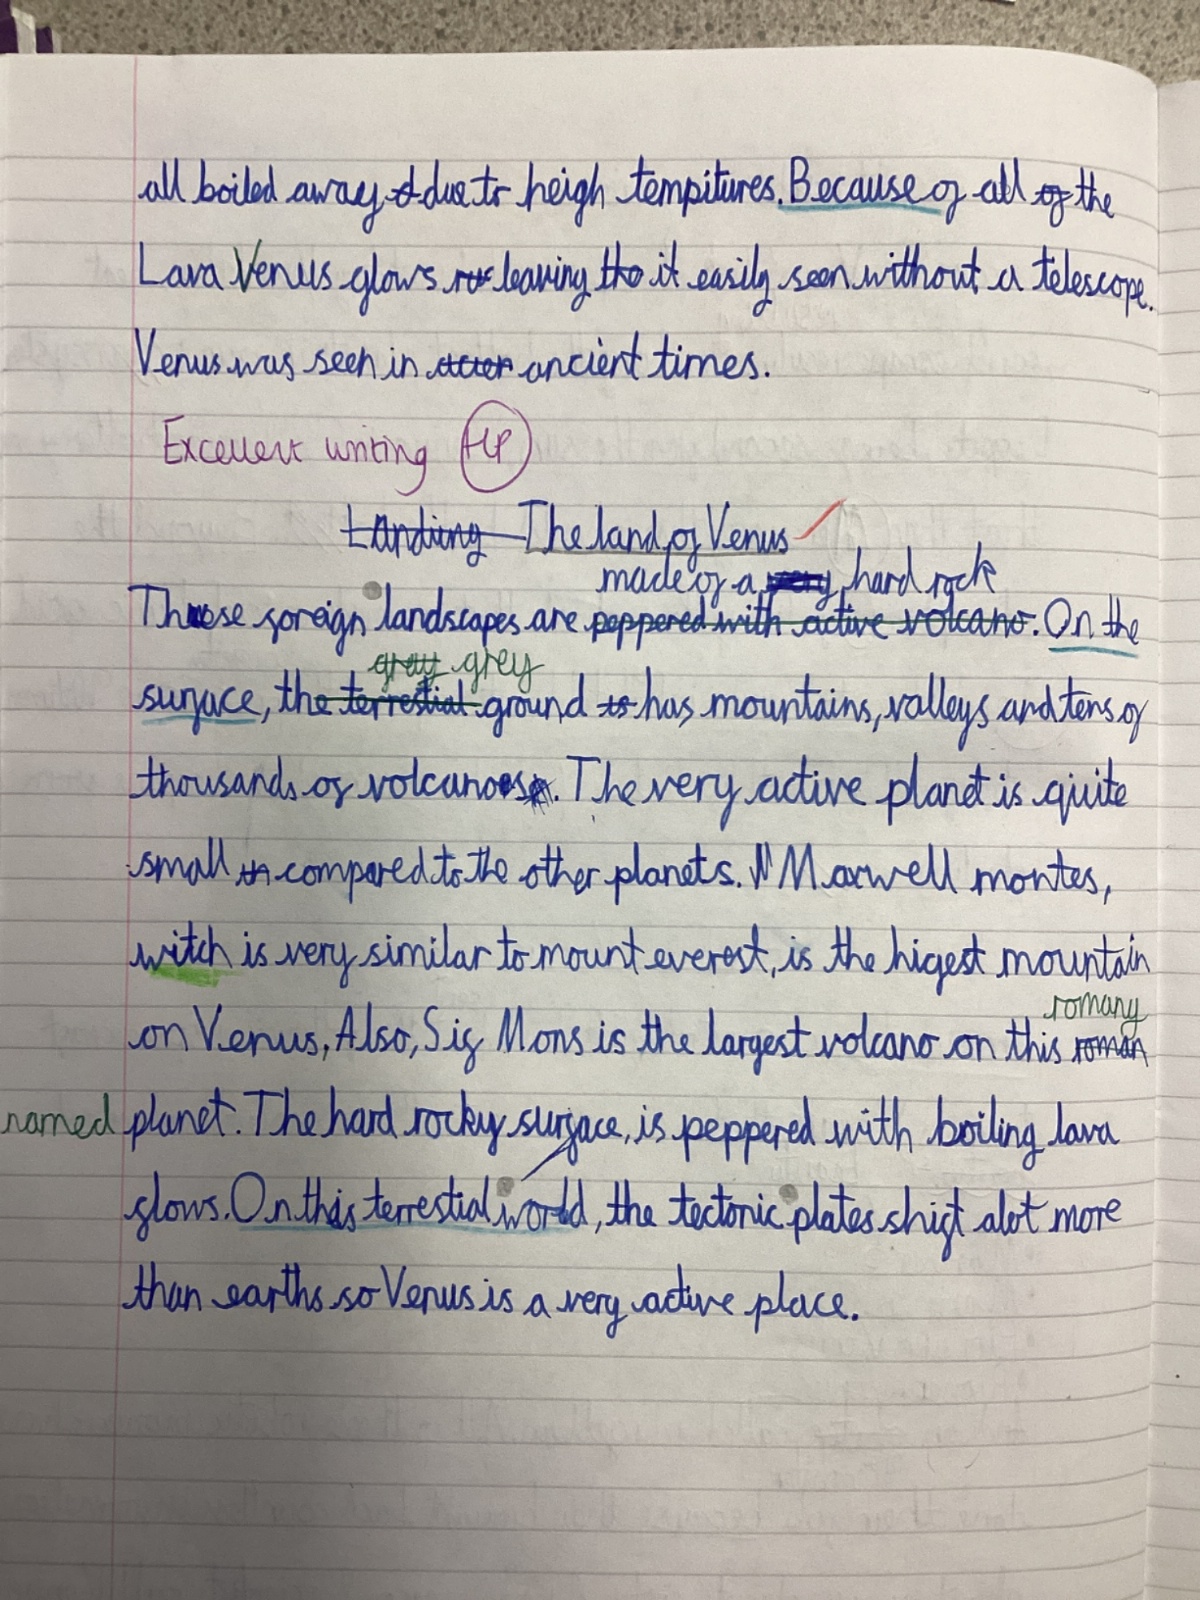 all boiled away due to heigh tempitures. Because of all of the
Lava Venus glows leaving it easily seen without a telescope.
Venus was seen in ancient times.
Excellent writing HP
Landing The land of Venus
made of a very hard rock
These foreign landscapes are peppered with active volcano. On the
gray grey
surface, the terrestial ground is has mountains, valleys and tens of
thousands of volcanoes. The very active planet is quite
small compared to the other planets. Maxwell montes,
witch is very similar to mount everest, is the higest mountain
romany
on Venus, Also, Sif Mons is the largest volcano on this roman
named planet. The hard rocky surface, is peppered with boiling lava
flows. On this terrestial world, the tectonic plates shift alot more
than earths so Venus is a very active place.